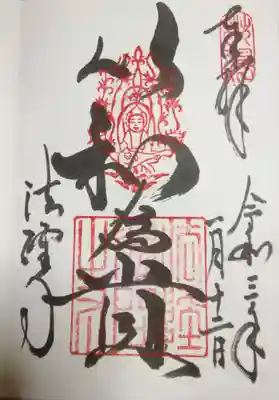 奉拝
令和三年
一月十二日
以和為貴
法隆寺